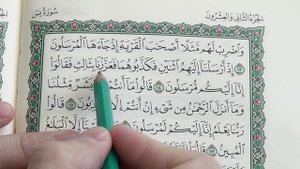 الجزء الثاني والعشرون
سورة يس
وَاضْرِبْ لَهُم مَّثَلًا أَصْحَابَ الْقَرْيَةِ إِذْ جَاءَهَا الْمُرْسَلُونَ
١٣ إِذْ أَرْسَلْنَا إِلَيْهِمُ اثْنَيْنِ فَكَذَّبُوهُمَا فَعَزَّزْنَا بِثَالِثٍ فَقَالُوا
إِنَّا إِلَيْكُم مُّرْسَلُونَ ١٤ قَالُوا مَا أَنتُمْ بَشَرٌ مِّثْلُنَا
وَمَا أَنزَلَ الرَّحْمَٰنُ مِن شَيْءٍ إِنْ أَنتُمْ إِلَّا قَالُوا
رَبُّنَا يَعْلَمُ إِنَّا إِلَيْكُمْ لَمُرْسَلُونَ إِلَّا الْبَلَاغُ
الْمُبِينُ